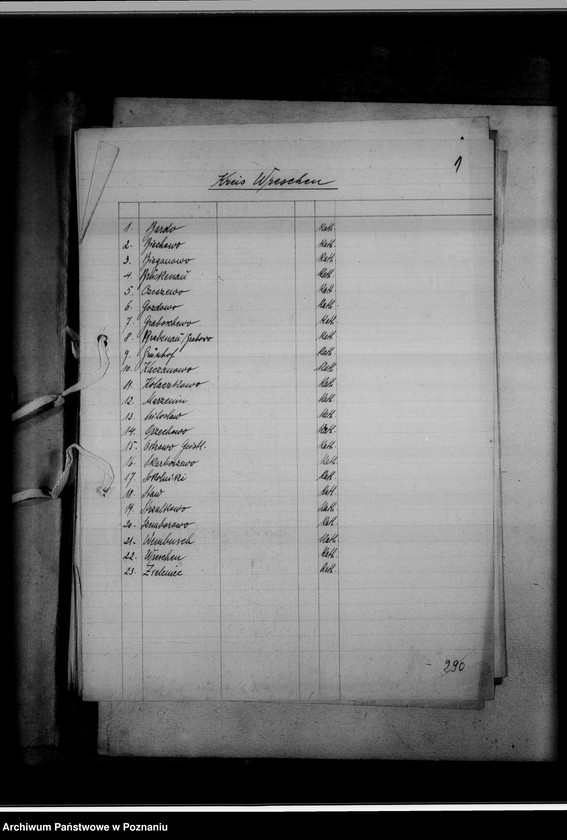 1
Kreis Wreschen
1. Bardo Kath.
2. Biechowo Kath.
3. Bieganowo Kath.
4. Brückenau Kath.
5. Czeszewo Kath.
6. Gozdowo Kath.
7. Graboschewo Kath.
8. Grabenau/Grabowo Kath.
9. Grünhof Kath.
10. Kaczanowo Kath.
11. Kolaczkowo Kath.
12. Marzenin Kath.
13. Miloslaw Kath.
14. Orzechowo Kath.
15. Ostrowo Kath.
16. Skarboszewo Kath.
17. Sokolniki Kath.
18. Staw Kath.
19. Stralkowo Kath.
20. Szemborowo Kath.
21. Wembusch Kath.
22. Wreschen Kath.
23. Zieleniec Kath.
290
Archiwum Państwowe w Poznaniu